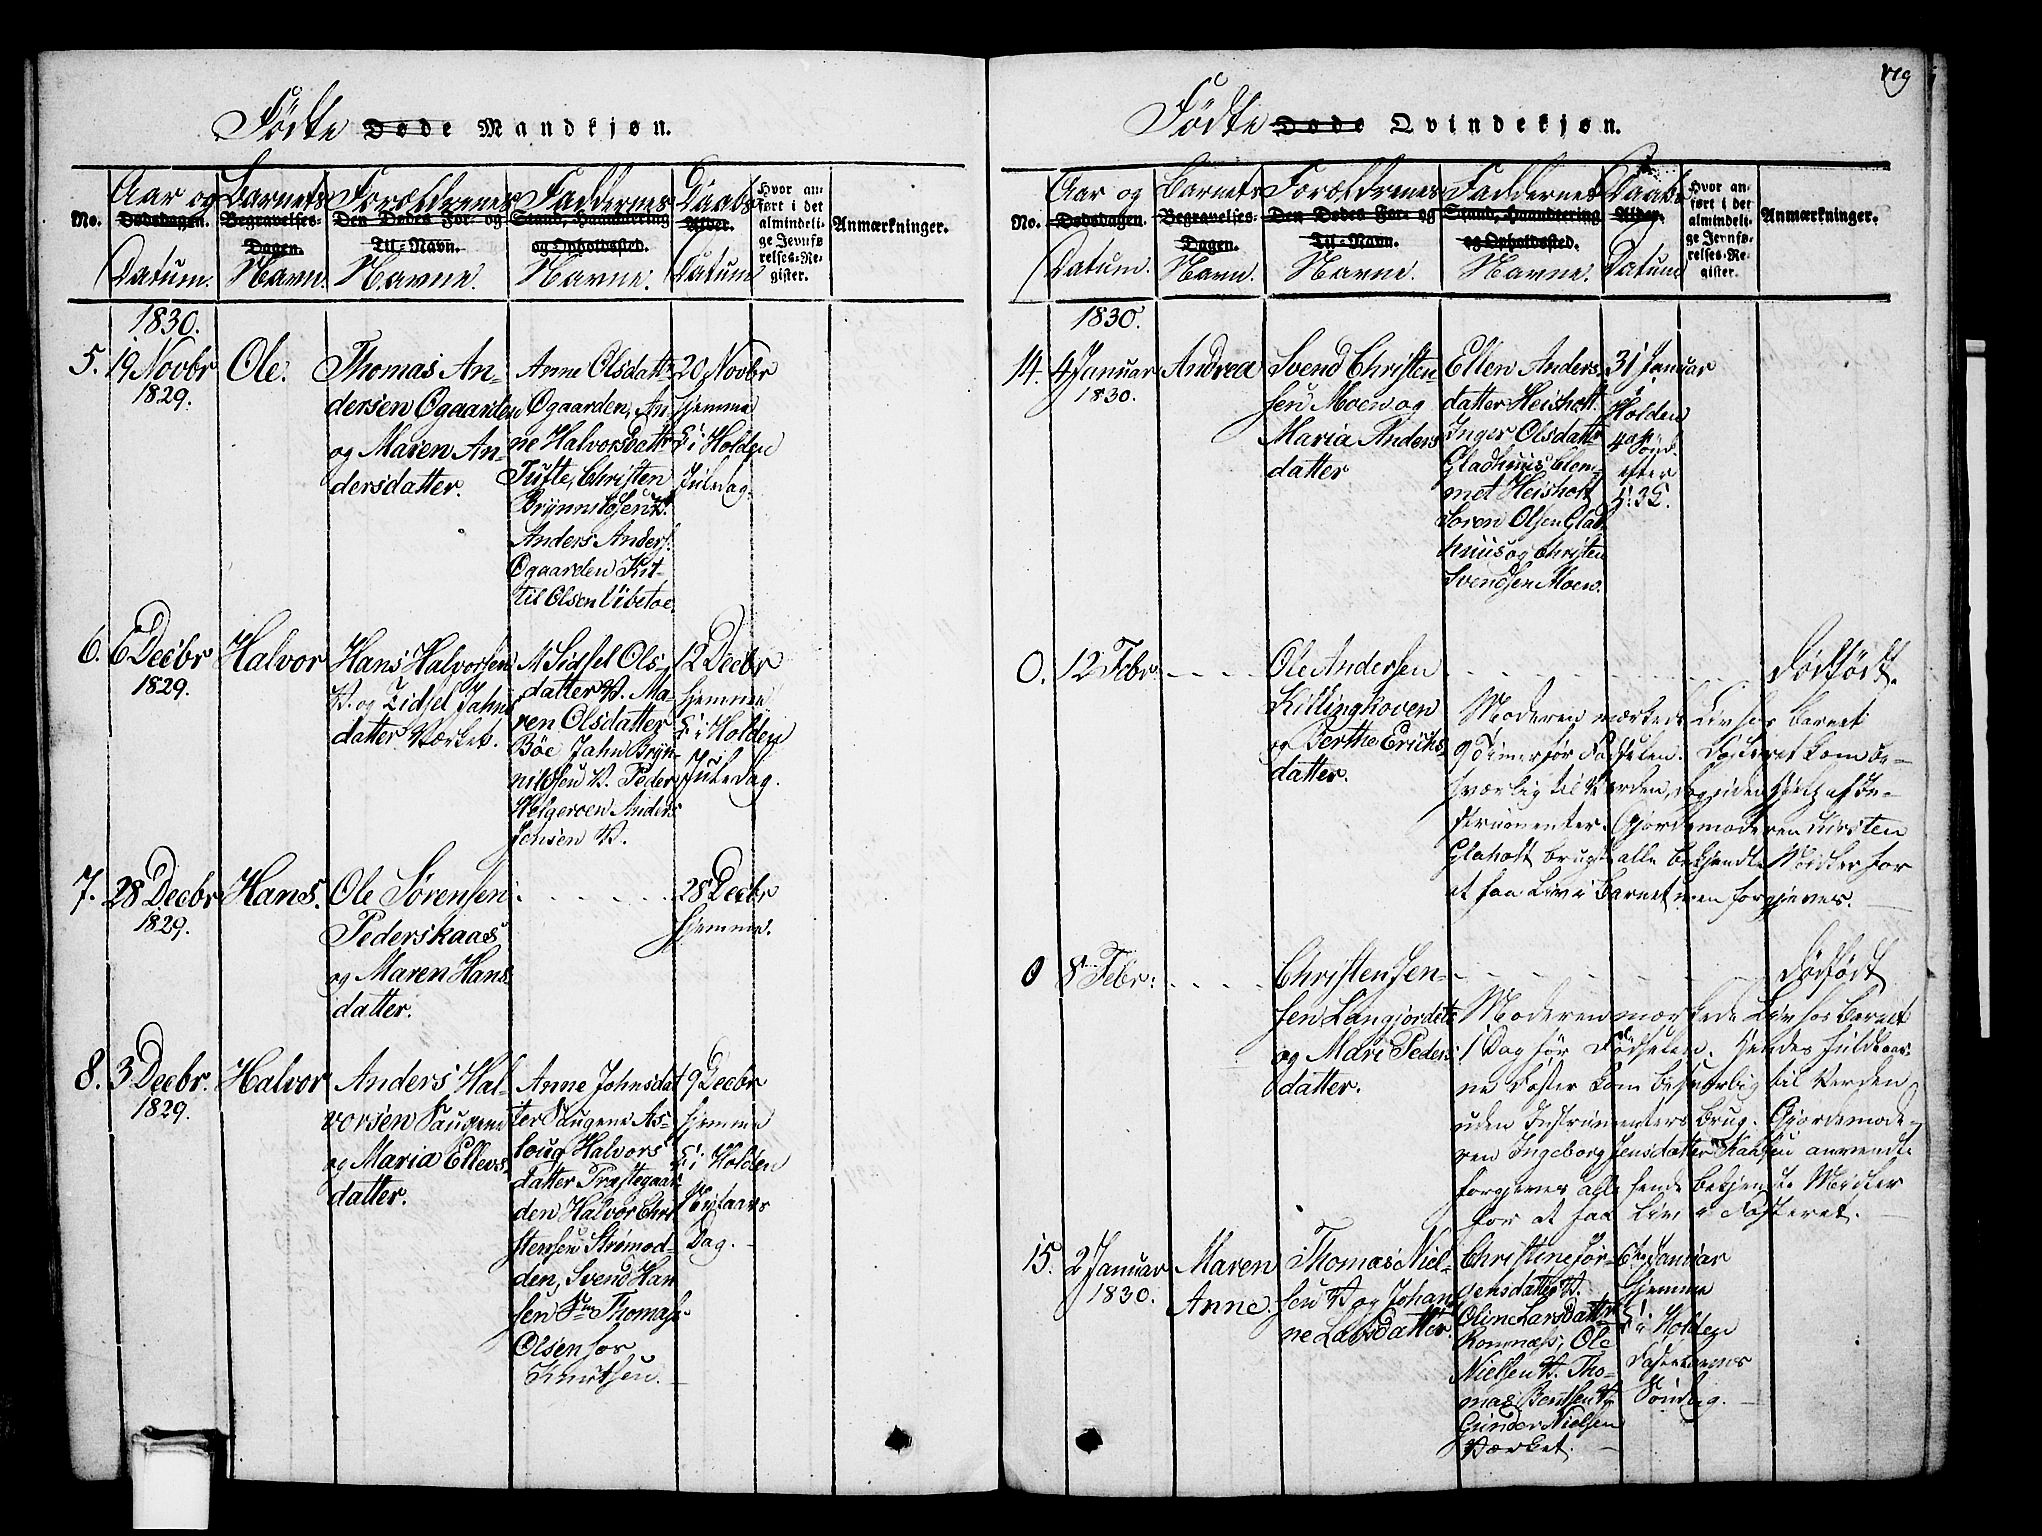 Fødte Døde Mandkjøn.
No.
Aar og
Dødsdagen.
Datum.
Barnets
Begravelses-
Dagen.
Navn.
Forældrenes
Den Dødes For- og
Til-Navn.
Navne.
Faddernes
Stand, Haandtering
og Opholdssted.
Navne.
Daabs
Alder.
Datum
Hvor an-
ført i det
almindeli-
ge Jevnfø-
relses-Re-
gister.
Anmærkninger.
1830.
5. 19 Novbr
1829.
Ole.
Thomas An-
dersen Ogaarden
og Maren An-
dersdatter.
Anne Olsdatt:
Ogaarden, An-
ne Halvorsdattr
Tufte, Christen
Brynnilsen V.
Anders Anders:
Ogaarden Kit-
til Olsen Ubetoe.
20 Novbr
hjemme
i Holden
Juledag.
6. 6 Decbr
1829.
Halvor
Hans Halvorsen
V. og Zidsel Jahns
datter Værket.
Sidsel Ols-
datter V. Ma-
ren Olsdatter
Böe Jahn Bryn-
nilsen V. Peder
Helgeroen Anders
Jensen V.
12 Decbr
hjemme
i Holden
Juledag.
7. 28 Decbr
1829.
Hans.
Ole Sörensen
Pederskaas
og Maren Hans
datter.
28 Decbr
hjemme.
8. 3 Decbr.
1829.
Halvor
Anders Hal-
vorsen Saugene
og Maria Ellevs
datter.
Anne Johnsdat
ter Saugene As-
loug Halvors
datter Præstegaar-
den Halvor Chri
stensen Strömod-
den, Svend Han
sen Thomas
Olsen
Knutsen.
19 Decbr
hjemme
i Holden
Nytaars
Dag.
Fødte Døde Qvindekjøn.
No.
Aar og
Dødsdagen.
Datum.
Barnets
Begravelses-
Dagen.
Navn.
Forældrenes
Den Dødes For- og
Til-Navn.
Navne.
Faddernes
Stand, Haandtering
og Opholdssted.
Navne.
Daabs
Alder.
Datum
Hvor an-
ført i det
almindeli-
ge Jevnfø-
relses-Re-
gister.
Anmærkninger.
1830.
14. 4 Januar
1830.
Andrea
Svend Christen-
sen Moen og
Maria Anders
datter
Ellen Anders
datter Heisholt
Inger Olsdattr
Gladhuus Clem-
met Heisholt
Soren Olsen Glad
huus og Christen
Svendsen Moen.
31 Januar
Holden
4de Sönd.
efter
H: 3 K.
0. 12 Febr.
Ole Andersen
Killinghoven
og Berthe Erichs
datter.
Dödfödt.
Moderen mærkede Liv hos Barnet
9 Timer för Födselen. Fosteret kom be-
sværlig til Verden, dog uden Hielp af In-
strumenter. Gjordemoderen Kirsten
Glaholt brugte alle bekjendte Midler for
at faa Liv i Barnet men forgjeves.
0 8 Febr:
Christen Jen-
sen Langjordet
og Mari Peders
datter.
Dödfödt
Moderen mærkede Liv hos Barnet
1 Dag för Födselen. Hendes fuldbaar-
ne Foster kom besværlig til Verden
uden Instrumenters Brug. Gjordemode-
ren Ingeborg Jensdatter anvendte
forgjeves alle hende bekjendte Midler
for at faa Liv i Fosteret.
15. 2 Januar
1830.
Maren
Anne.
Thomas Niel-
sen V. og Johan
ne Larsdatter.
Christine Jör-
gensdatter V.
Oline Larsdattr
Romnæs, Ole
Nielsen V. Tho-
mas Bentsen V.
Gunder Nielsen
Værket.
6te Januar
hjemme
i Holden
Fastelavns
Söndag.